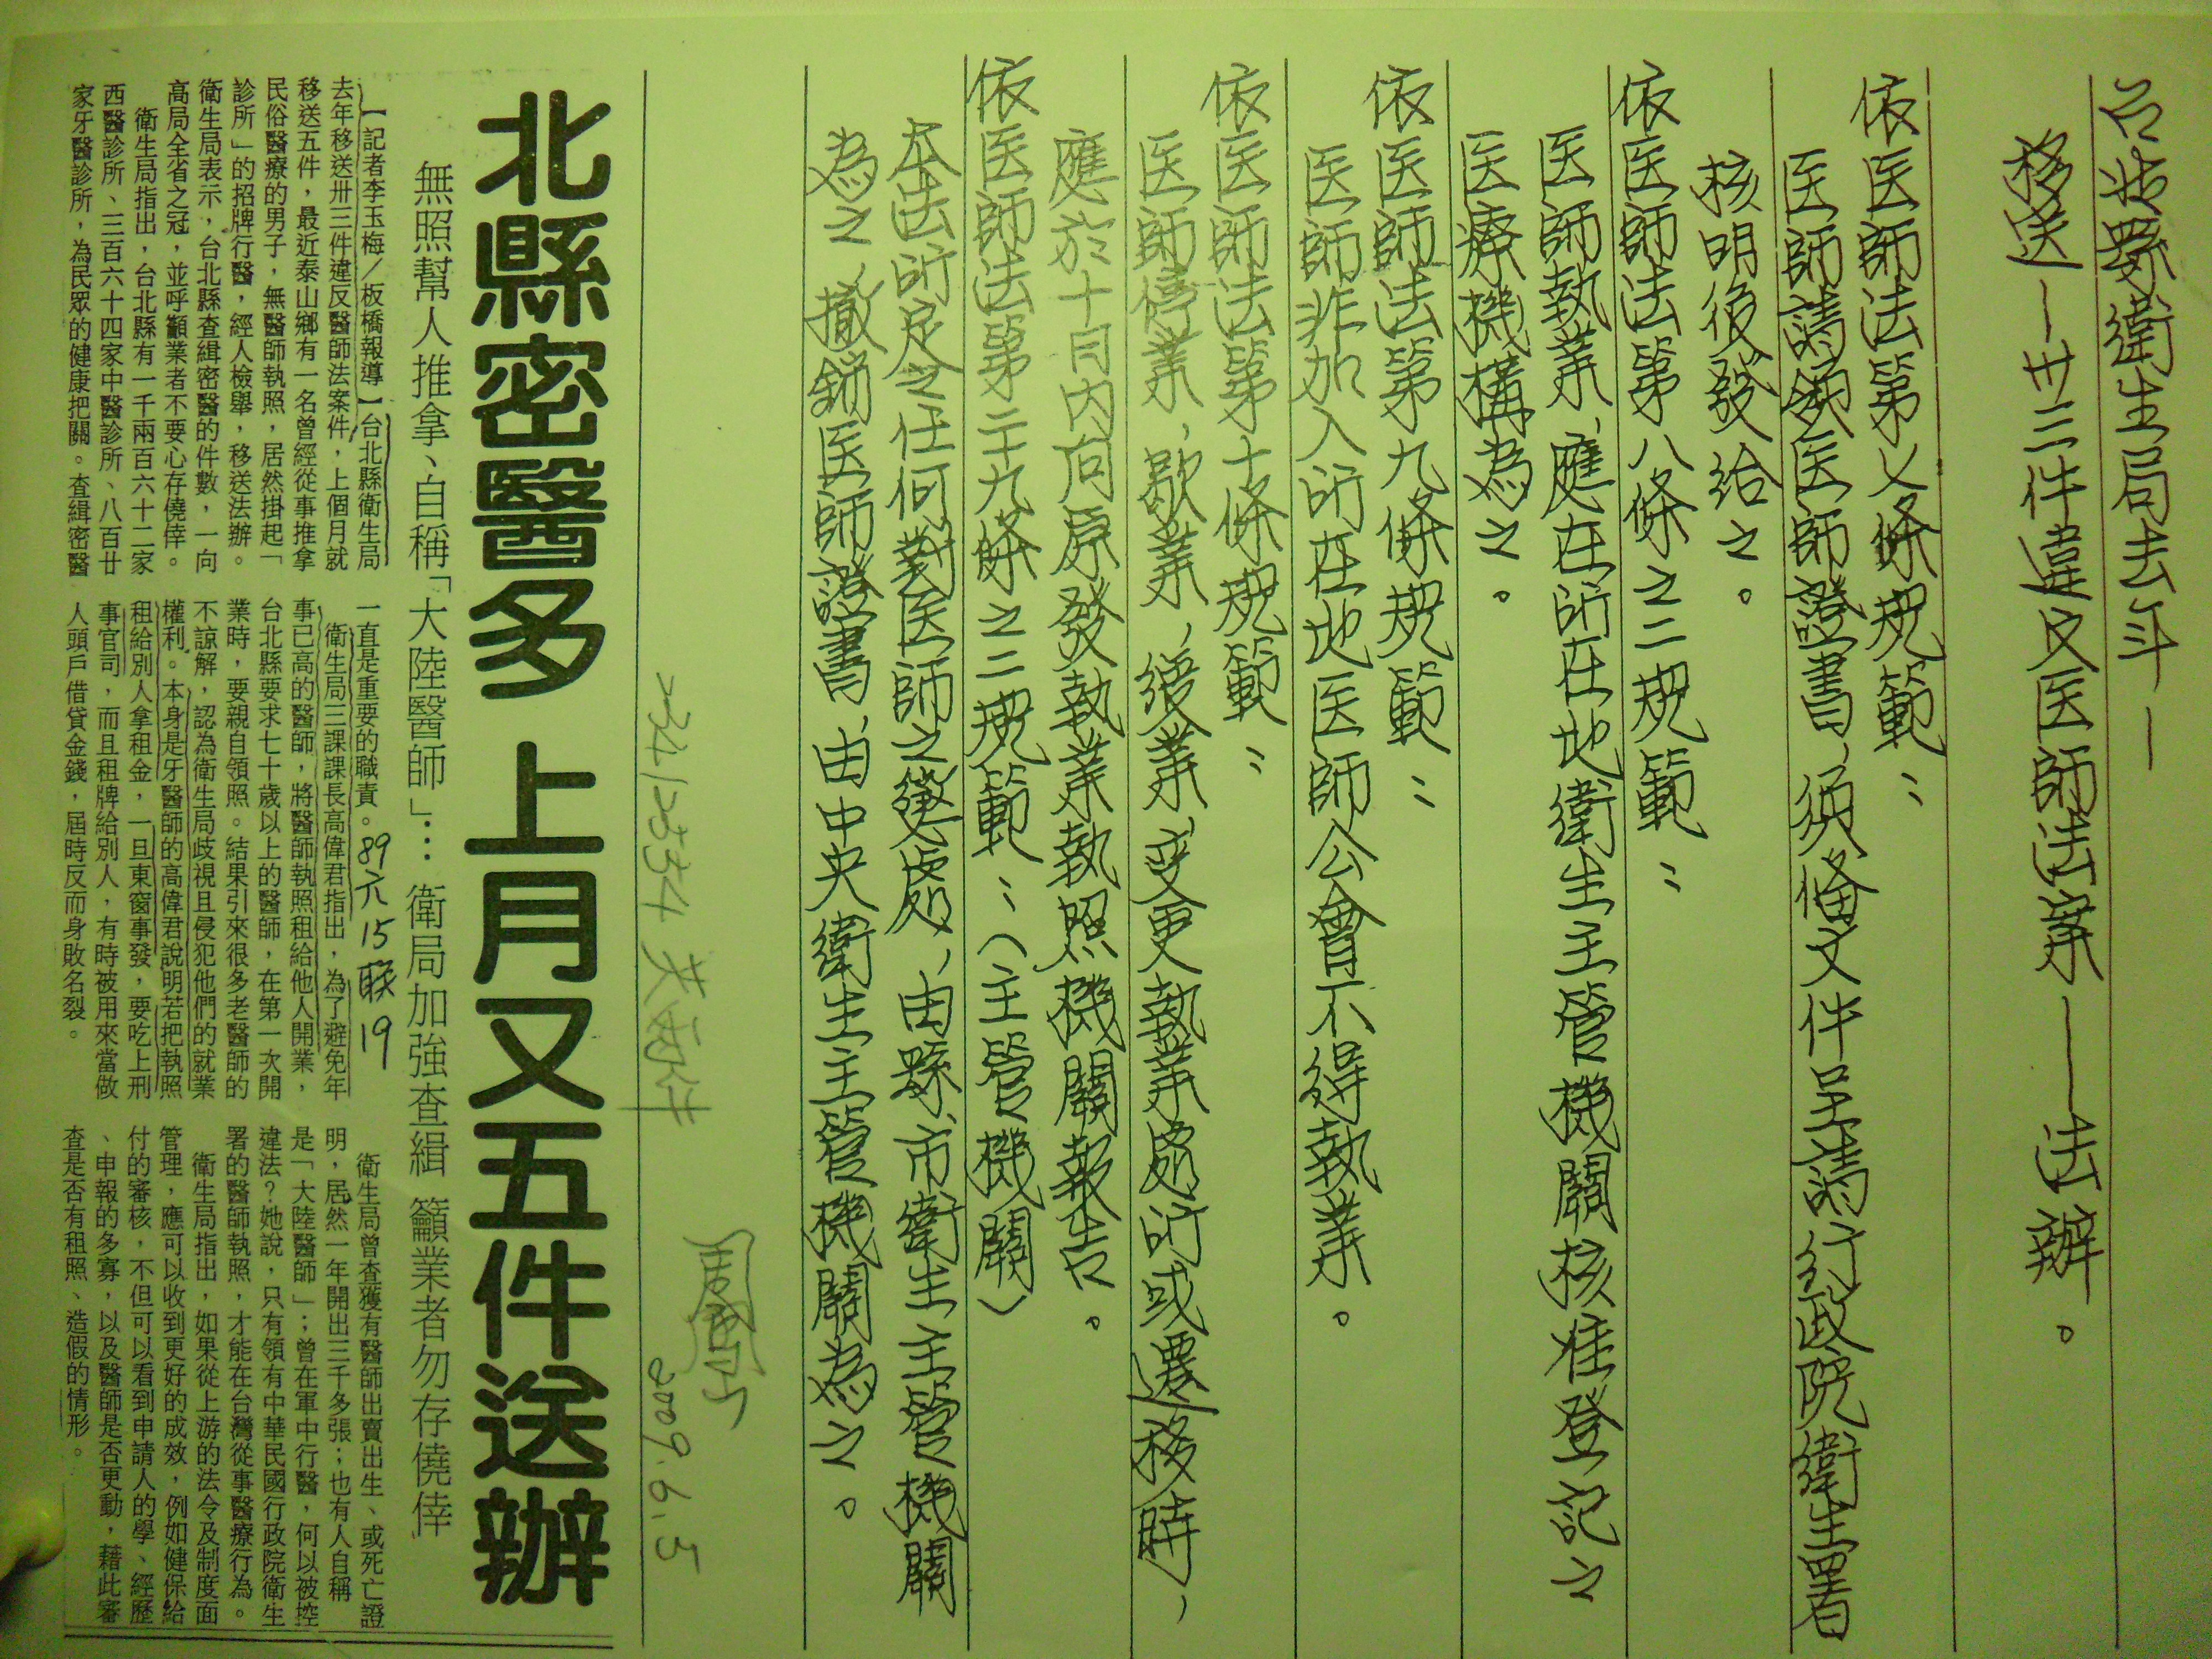 台北縣衛生局去年—
移送—卅三件違反医師法案——法辦。
依医師法第乂條規範：
医師請領医師證書，須俻文件呈請行政院衛生署
核明後發给之。
依医師法第八條之二規範：
医師執業，應在所在地衛生主管機關核准登記之
医療機構為之。
依医師法第九條規範：
医師非加入所在地医師公會不得執業。
依医師法第十條規範：
医師停業，歇業，復業，变更執業處所或遷移時，
應於十日内向原發執業執照機關報告。
依医師法第二十九條之二規範：（主管機關）
本法所定之任何對医師之懲處，由縣、市衛生主管機關
為之，撤銷医師證書，由中央衛生主管機關為之。
2009.6.5
北縣密醫多 上月又五件送辦
無照幫人推拿、自稱「大陸醫師」… 衛局加強查緝 籲業者勿存僥倖
【記者李玉梅／板橋報導】台北縣衛生局
去年移送卅三件違反醫師法案件，上個月就
移送五件，最近泰山鄉有一名曾經從事推拿
民俗醫療的男子，無醫師執照，居然掛起「
診所」的招牌行醫，經人檢舉，移送法辦。
衛生局表示，台北縣查緝密醫的件數，一向
高局全省之冠，並呼籲業者不要心存僥倖。
衛生局指出，台北縣有一千兩百六十二家
西醫診所、三百六十四家中醫診所、八百廿
家牙醫診所，為民眾的健康把關。查緝密醫
一直是重要的職責。
89六15联19
衛生局三課課長高偉君指出，為了避免年
事已高的醫師，將醫師執照租給他人開業，
台北縣要求七十歲以上的醫師，在第一次開
業時，要親自領照。結果引來很多老醫師的
不諒解，認為衛生局歧視且侵犯他們的就業
權利。本身是牙醫師的高偉君說明若把執照
租給別人拿租金，一旦東窗事發，要吃上刑
事官司，而且租牌給別人，有時被用來當做
人頭戶借貸金錢，屆時反而身敗名裂。
衛生局曾查獲有醫師出賣出生、或死亡證
明，居然一年開出三千多張；也有人自稱
是「大陸醫師」；曾在軍中行醫，何以被控
違法？她說，只有領有中華民國行政院衛生
署的醫師執照，才能在台灣從事醫療行為。
衛生局指出，如果從上游的法令及制度面
管理，應可以收到更好的成效，例如健保給
付的審核，不但可以看到申請人的學、經歷
、申報的多寡，以及醫師是否更動，藉此審
查是否有租照、造假的情形。